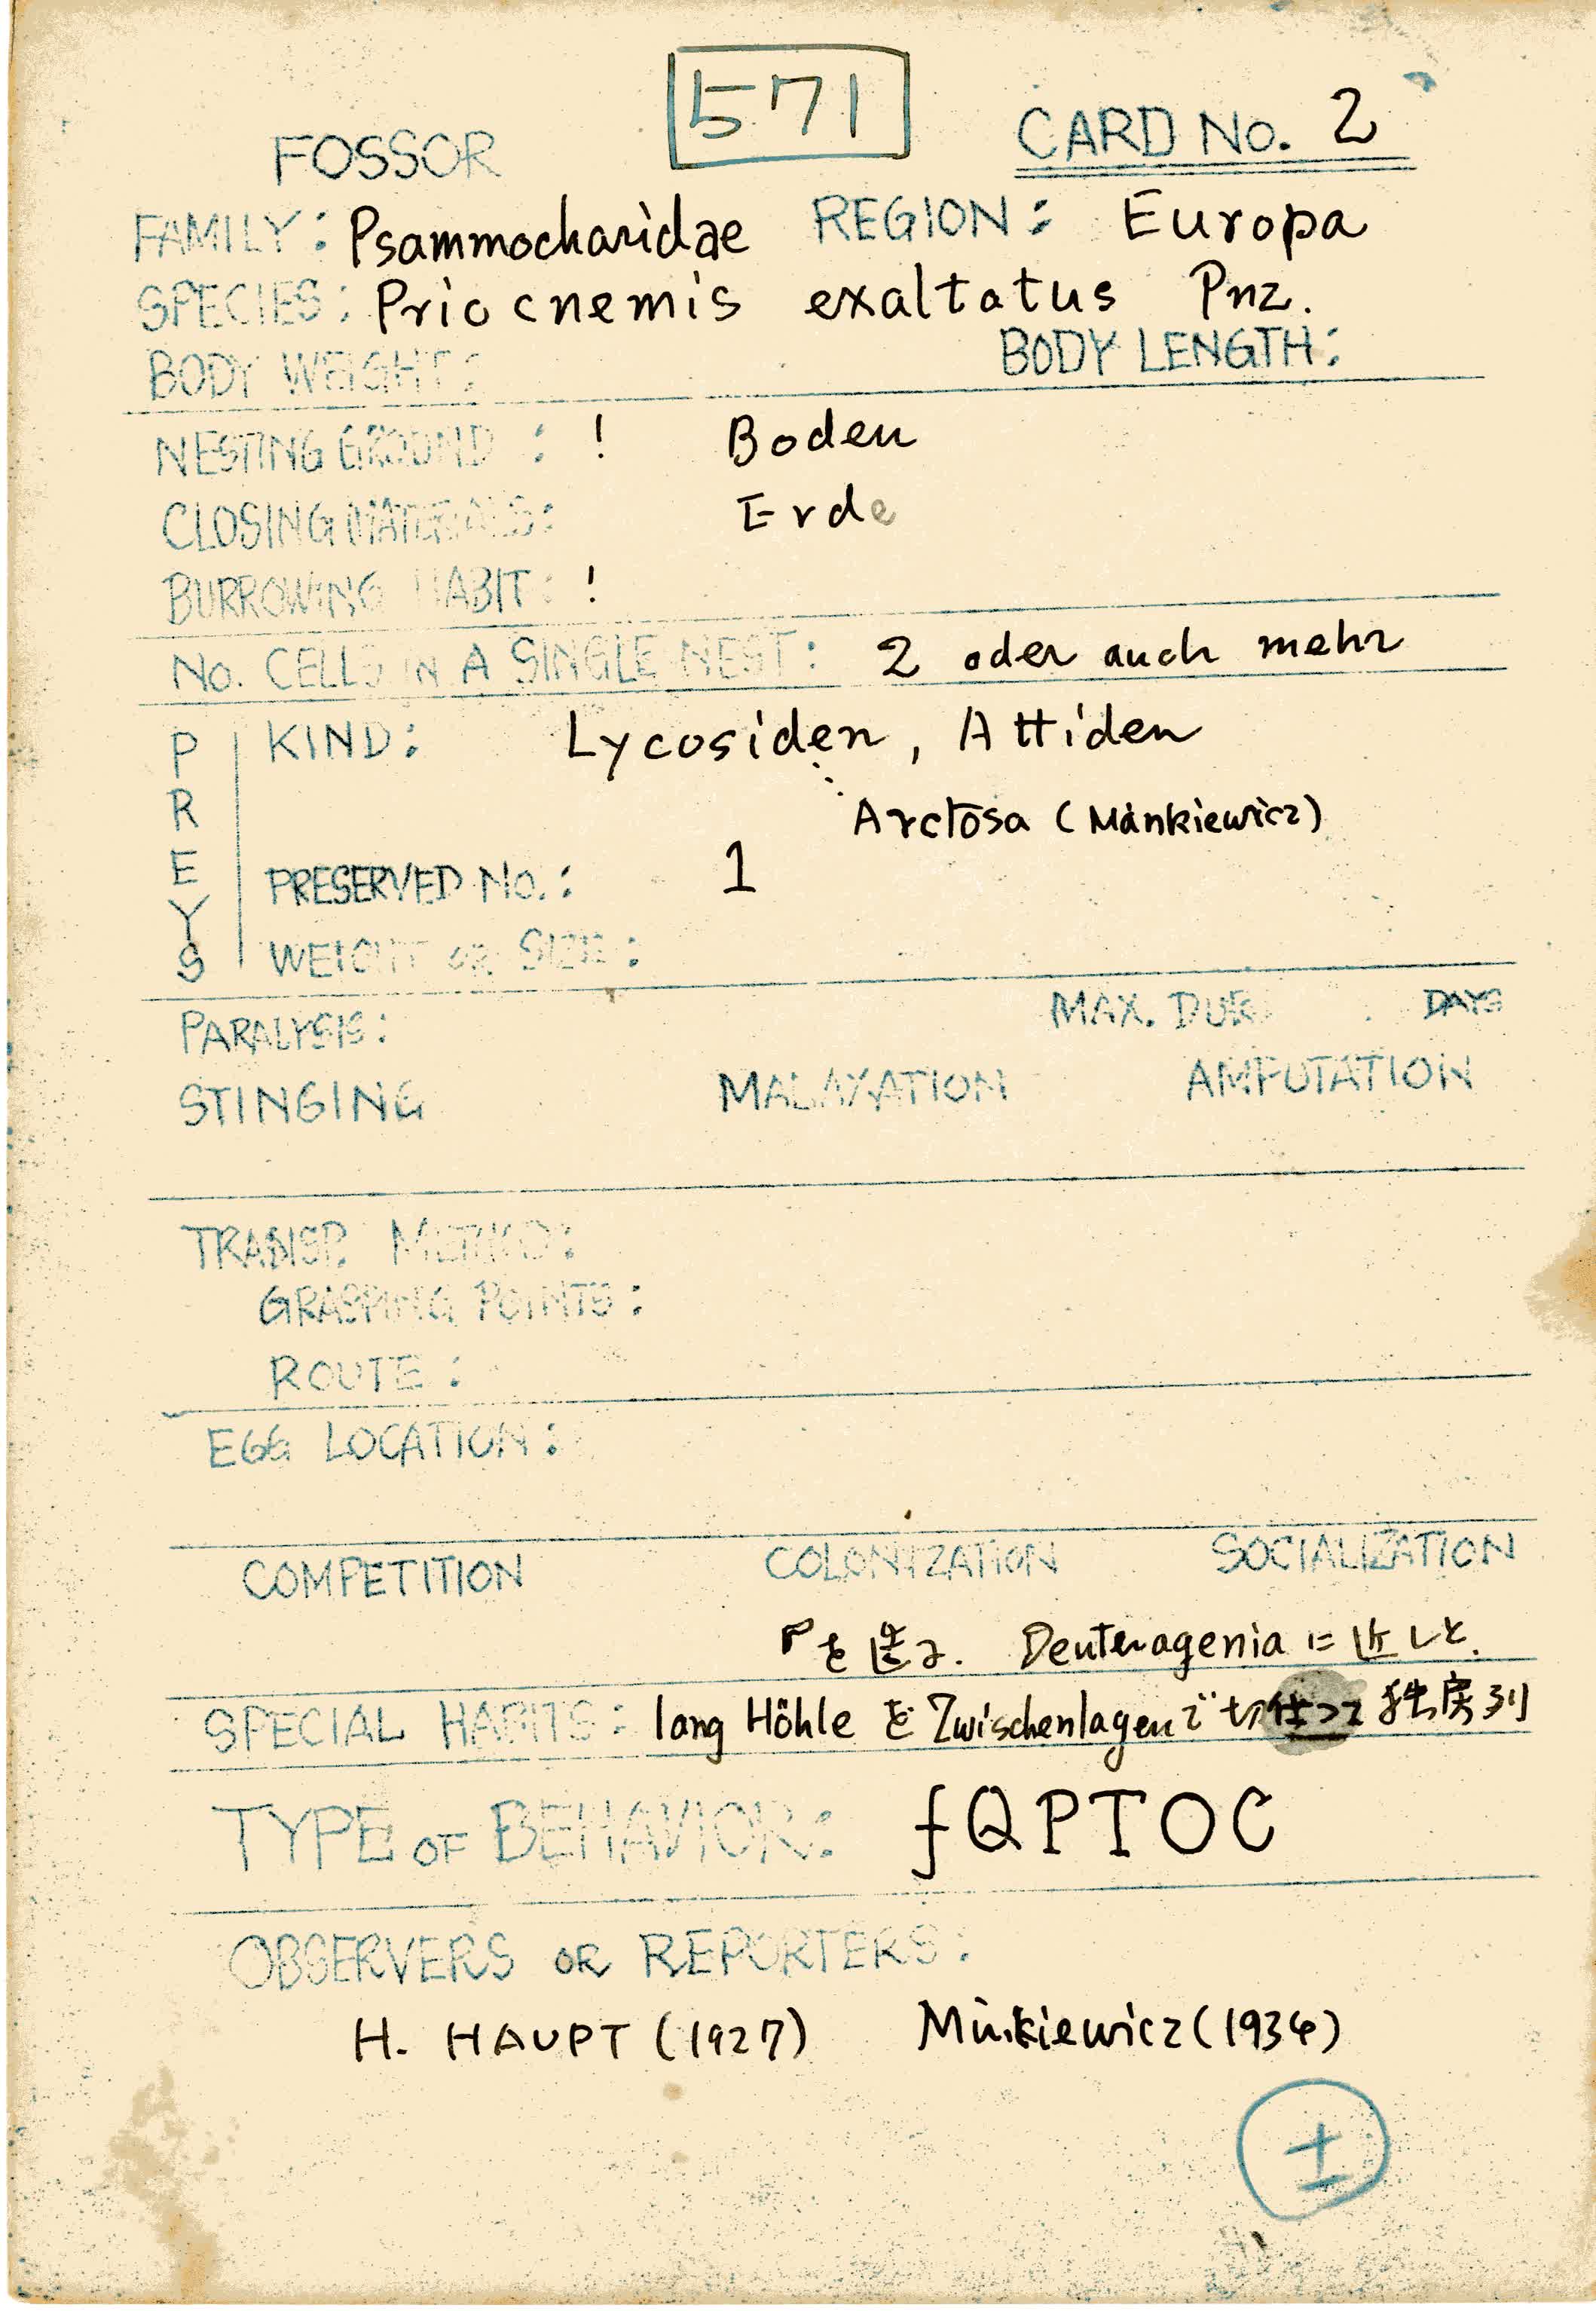 571
FOSSOR
CARD No. 2
FAMILY: Psammocharidae REGION: Europa
SPECIES: Priocnemis exaltatus Pnz.
BODY WEIGHT:
BODY LENGTH:
NESTING GROUND : ! Boden
CLOSING MATERIALS: Erde
BURROWING HABIT: !
No. CELLS IN A SINGLE NEST: 2 oder auch mehr
PREYS
KIND: Lycosiden, Attiden
Arctosa (Minkiewicz)
PRESERVED No.: 1
WEIGHT OR SIZE:
PARALYSIS:
MAX. DUR. DAYS
STINGING MALAXATION AMPUTATION
TRANSP. METHOD:
GRASPING POINTS:
ROUTE:
EGG LOCATION:
COMPETITION COLONIZATION SOCIALIZATION
Deuteragenia に近しと.
SPECIAL HABITS: lang Höhle を Zwischenlagen で切仕って 独房列
TYPE OF BEHAVIOR: fQPTOC
OBSERVERS OR REPORTERS:
H. HAUPT (1927) Minkiewicz (1934)
±